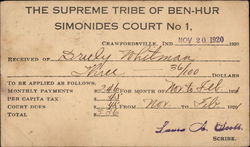 THE SUPREME TRIBE OF BEN-HUR
SIMONIDES COURT No 1,
CRAWFORDSVILLE, IND NOV 20 1920 192
RECEIVED OF Whitman
Three 36/100 DOLLARS
TO BE APPLIED AS FOLLOWS:
MONTHLY PAYMENTS $ FOR MONTH OF Nov to Feb 192
PER CAPITA TAX $
COURT DUES $ FROM Nov to Feb 192
TOTAL $
Laura A. Scott.
SCRIBE.